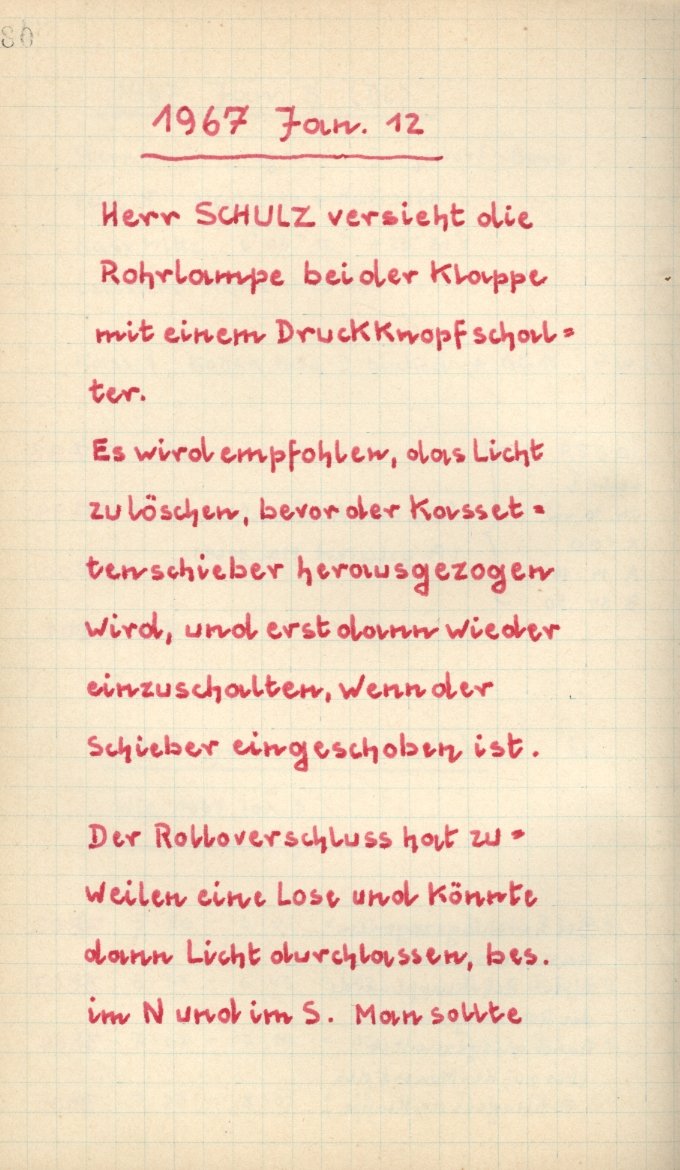 1967 Jan. 12
Herr SCHULZ versieht die
Rohrlampe bei der Klappe
mit einem Druckknopfschal=
ter.
Es wird empfohlen, das Licht
zu löschen, bevor der Kasset=
tenschieber herausgezogen
wird, und erst dann wieder
einzuschalten, wenn der
Schieber eingeschoben ist.
Der Rolloverschluss hat zu=
weilen eine Lose und könnte
dann Licht durchlassen, bes.
im N und im S. Man sollte